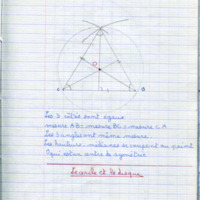 Les 3 côtés sont égaux
mesure AB = mesure BC = mesure CA
Les 3 angles ont même mesure
Les hauteurs médianes se coupent au point
O qui est un centre de symétrie
Le cercle et le disque